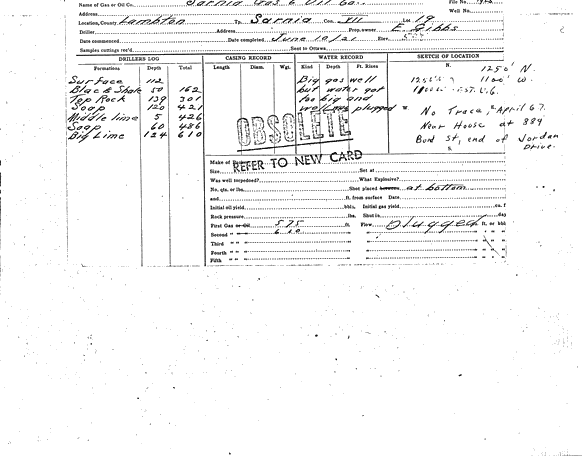 Name of Gas or Oil Co. Sarnia Gas & Oil Co. File No.
Address Well No.
Location, County Lambton Tp. Sarnia Con. VII Lot 19
Driller Address Prop. owner E. Gibbs
Date commenced Date completed June 10/21 Elev.
Samples cuttings rec'd Sent to Ottawa
DRILLERS LOG CASING RECORD WATER RECORD SKETCH OF LOCATION
Formations Depth Total Length Diam. Wgt. Kind Depth Ft. Rises N.
1250' N.
1100' W.
Surface 112
Black Shale 50 162
Top Rock 139 301
Soap 120 421
Middle lime 5 426
Soap 60 486
Big Lime 124 610
Big gas well
but water got
too big and
well was plugged
No Trace, April 67.
Near House at 889
Bond St, end of Jordan
Drive.
S.
OBSOLETE
REFER TO NEW CARD
Make of
Size Set at
Was well torpedoed? What Explosive?
No. qts. or lbs. Shot placed at bottom
and ft. from surface Date
Initial oil yield bbls. Initial gas yield cu. f
Rock pressure lbs. Shut in day
First Gas or Oil 575 ft. Flow Plugged ft. or bbl
Second " " 610 " " "
Third " " " " "
Fourth " " " " "
Fifth " " " " "